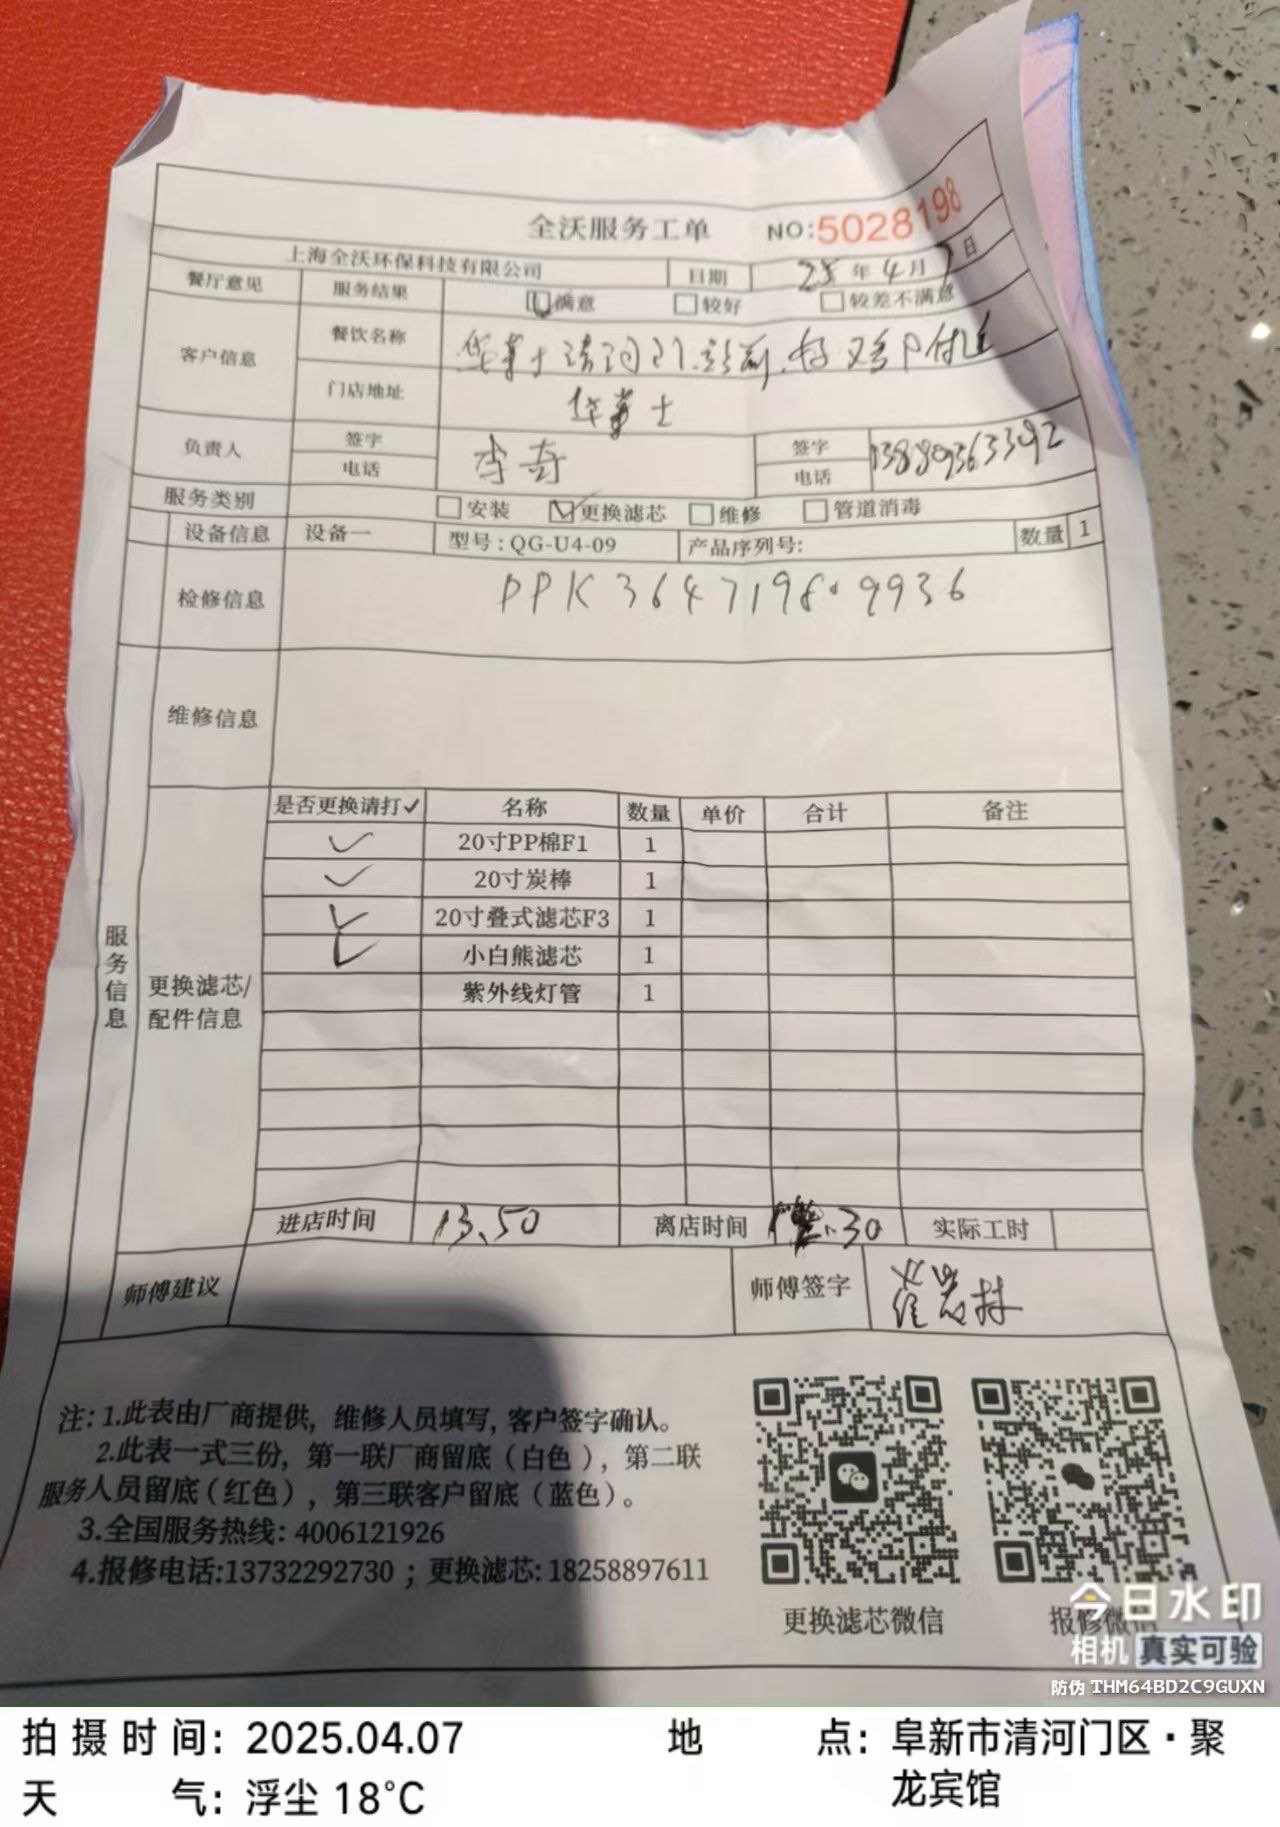 全沃服务工单 NO:5028198
上海全沃环保科技有限公司 日期 25年4月7日
餐厅意见 服务结果 满意 较好 较差不满意
客户信息 餐饮名称 华莱士清河门
门店地址 华莱士
负责人 签字 李奇 签字
电话 电话 13889363392
服务类别 安装 更换滤芯 维修 管道消毒
设备信息 设备一 型号:QG-U4-09 产品序列号: 数量 1
检修信息 PPK 3647198.9936
维修信息
服务信息
更换滤芯/配件信息
是否更换请打✓ 名称 数量 单价 合计 备注
✓ 20寸PP棉F1 1
✓ 20寸炭棒 1
✓ 20寸叠式滤芯F3 1
✓ 小白熊滤芯 1
紫外线灯管 1
进店时间 13.50 离店时间 30 实际工时
师傅建议 师傅签字
注:1.此表由厂商提供,维修人员填写,客户签字确认。
2.此表一式三份,第一联厂商留底(白色),第二联
服务人员留底(红色),第三联客户留底(蓝色)。
3.全国服务热线: 4006121926
4.报修电话:13732292730 ; 更换滤芯: 18258897611
更换滤芯微信 报修微信
今日水印
相机 真实可验
防伪 THM64BD2C9GUXN
拍摄时间: 2025.04.07 地点: 阜新市清河门区·聚
天气: 浮尘 18°C 龙宾馆